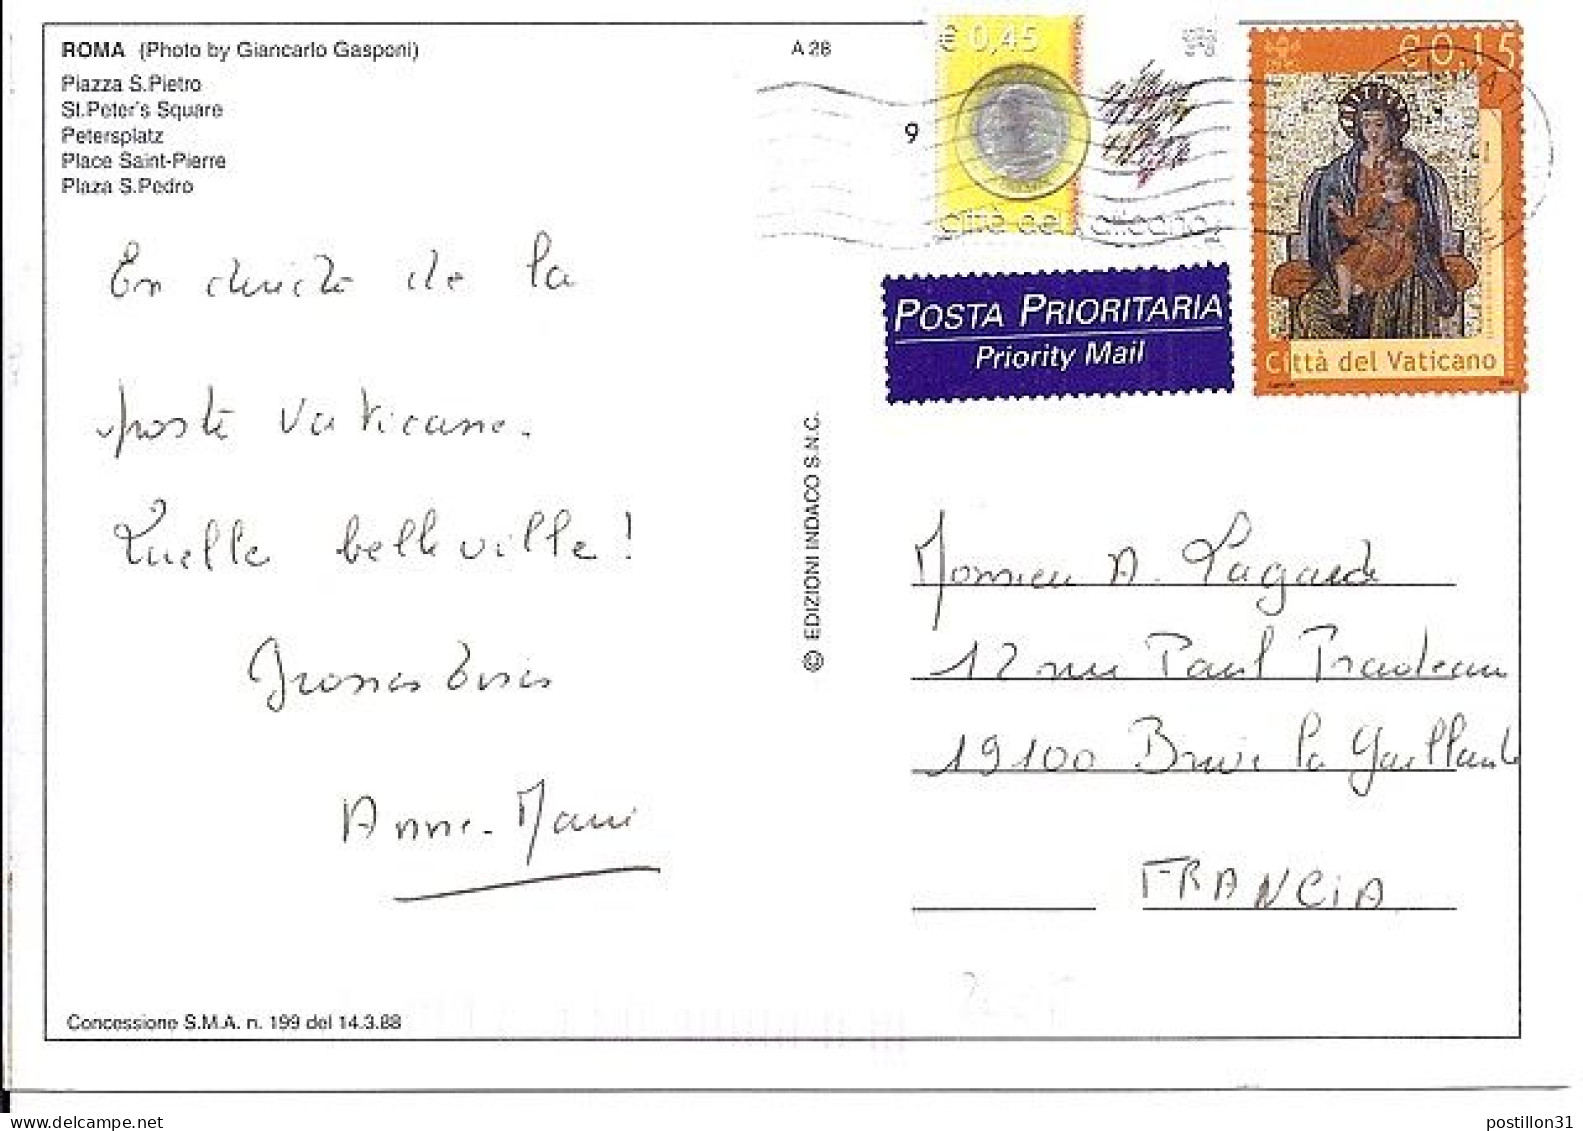 ROMA (Photo by Giancarlo Gasponi)
A 28
Piazza S.Pietro
St.Peter's Square
Petersplatz
Place Saint-Pierre
Plaza S.Pedro
€ 0,45
9
Città del Vaticano
€ 0,15
Città del Vaticano
POSTA PRIORITARIA
Priority Mail
En directe de la
poste Vaticane.
Quelle belle ville !
Grosses bises
Anne-Marie
© EDIZIONI INDACO S.N.C.
Monsieur A. Lagarde
12 rue Paul Pradeau
19100 Brive la Gaillarde
FRANCIA
Concessione S.M.A. n. 199 del 14.3.88
postillon31